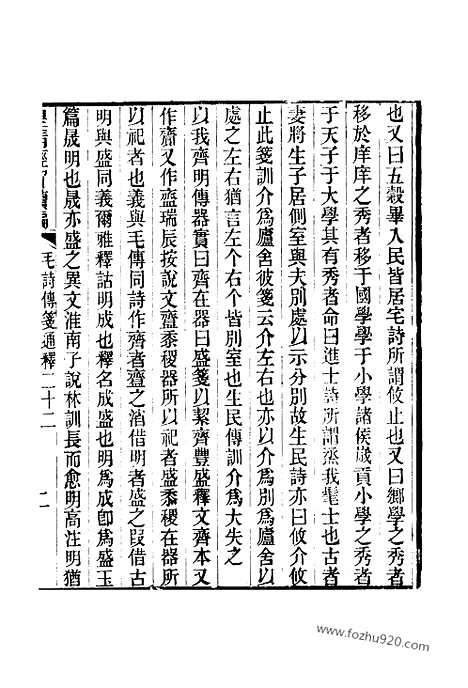 也又曰五穀畢入民皆居宅詩所謂攸止也又曰鄉學之秀者
移於庠庠之秀者移于國學學于小學諸侯歲貢小學之秀者
于天子于大學其有秀者命曰進士詩所謂烝我髦士也古者
妻將生子居側室與夫別處以示分別故生民詩亦曰攸介攸
止此箋訓介爲廬舍彼箋云介左右也亦以介爲別爲廬舍以
處之左右猶言左个右个皆別室也生民傳訓介爲大失之
以我齊明傳器實曰齊在器曰盛箋以絜齊豐盛釋文齊本又
作齋又作齍瑞辰按說文齍黍稷器所以祀者盛黍稷在器所
以祀者也義與毛傳同詩作齊者齍之渻借明者盛之叚借古
明與盛同義爾雅釋詁明成也釋名成盛也明爲成卽爲盛玉
篇晟明也晟亦盛之異文淮南子說林訓長而愈明高注明猶
皇清經解續編
毛詩傳箋通釋二十二
二
www.fozhu920.com